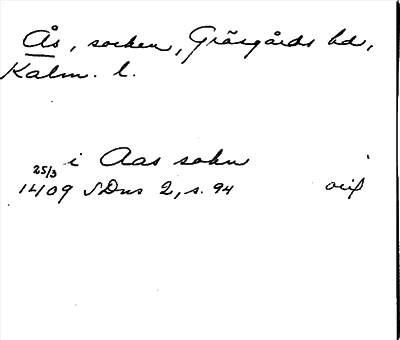 Ås, socken, Gräsgårds hd,
Kalm. l.
i Aas sokn
25/3
1409 SDns 2, s. 94 orig